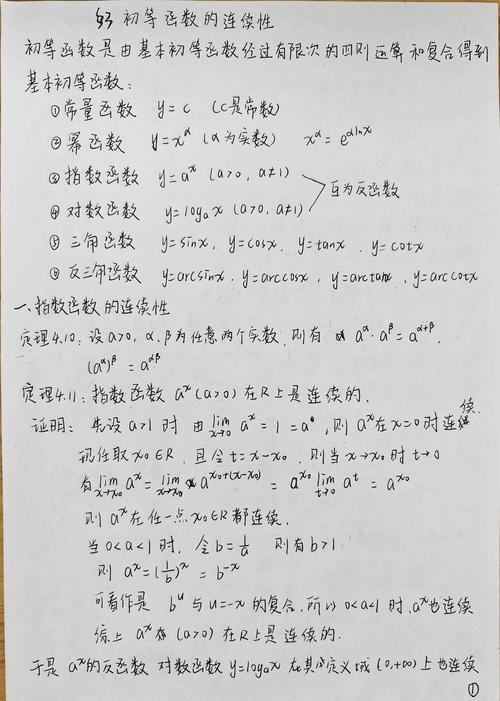 §3 初等函数的连续性
初等函数是由基本初等函数经过有限次的四则运算和复合得到
基本初等函数:
①常量函数 y=c (c是常数)
②幂函数 y=x^α (α为实数) x^α=e^{αlnx}
③指数函数 y=a^x (a>0, a≠1)
互为反函数
④对数函数 y=log_a x (a>0, a≠1)
⑤三角函数 y=sinx, y=cosx, y=tanx, y=cotx
⑥反三角函数 y=arcsinx, y=arccosx, y=arctanx, y=arccotx
一、指数函数的连续性
定理4.10: 设a>0, α、β为任意两个实数, 则有 a^α·a^β=a^{α+β},
(a^α)^β=a^{αβ}
定理4.11: 指数函数 a^x (a>0) 在R上是连续的.
证明: 先设a>1时 由 lim_{x→0} a^x=1=a^0, 则a^x在x=0时连续
现任取x₀∈R, 且令t=x-x₀, 则当x→x₀时t→0
有 lim_{x→x₀} a^x = lim_{x→x₀} a^{x₀+(x-x₀)} = a^{x₀} lim_{t→0} a^t = a^{x₀}
则 a^x在任一点x₀∈R都连续.
当0<a<1时, 令b=1/a 则有b>1
则 a^x=(1/b)^x=b^{-x}
可看作是 b^u 与u=-x的复合, 所以0<a<1时, a^x也连续
综上 a^x (a>0) 在R上是连续的.
于是 a^x的反函数 对数函数 y=log_a x 在其定义域(0,+∞)上也连续
①